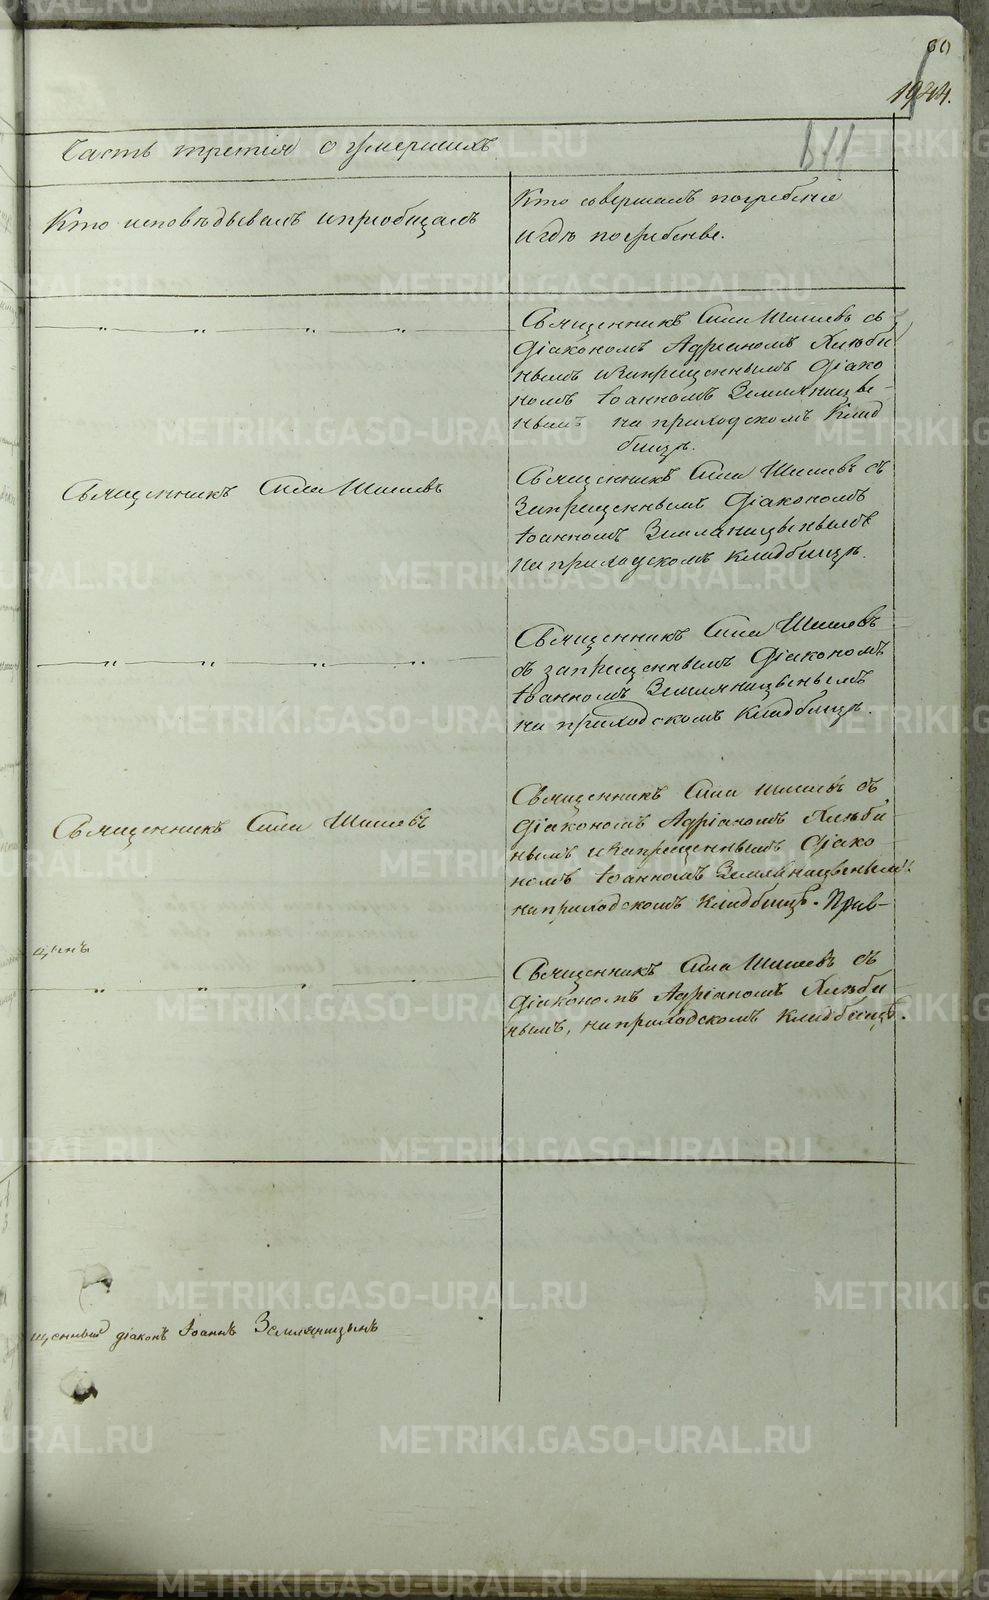 60
1844.
Часть третія о умершихъ.
811
Кто исповѣдывалъ и пріобщалъ
Кто совершалъ погребеніе
и гдѣ погребены.
Священникъ Сила Шишевъ съ
діакономъ Адріаномъ Хлѣби
нымъ и Запрещеннымъ Діако
номъ Іоанномъ Земляницы
нымъ на приходскомъ Клад
бищѣ.
Священникъ Сила Шишевъ
Священникъ Сила Шишевъ съ
Запрещеннымъ Діакономъ
Іоанномъ Земляницынымъ
на приходскомъ Кладбищѣ.
Священникъ Сила Шишевъ
съ запрещеннымъ Діакономъ
Іоанномъ Земляницынымъ
на приходскомъ Кладбищѣ.
Священникъ Сила Шишевъ
Священникъ Сила Шишевъ съ
Діакономъ Адріаномъ Хлѣби
нымъ и Запрещеннымъ Діако
номъ Іоанномъ Земляницынымъ
на приходскомъ Кладбищѣ.
Священникъ Сила Шишевъ съ
Діакономъ Адріаномъ Хлѣби
нымъ, на приходскомъ Кладбищѣ.
щенный діаконъ Іоаннъ Земляницынъ
METRIKI.GASO-URAL.RU